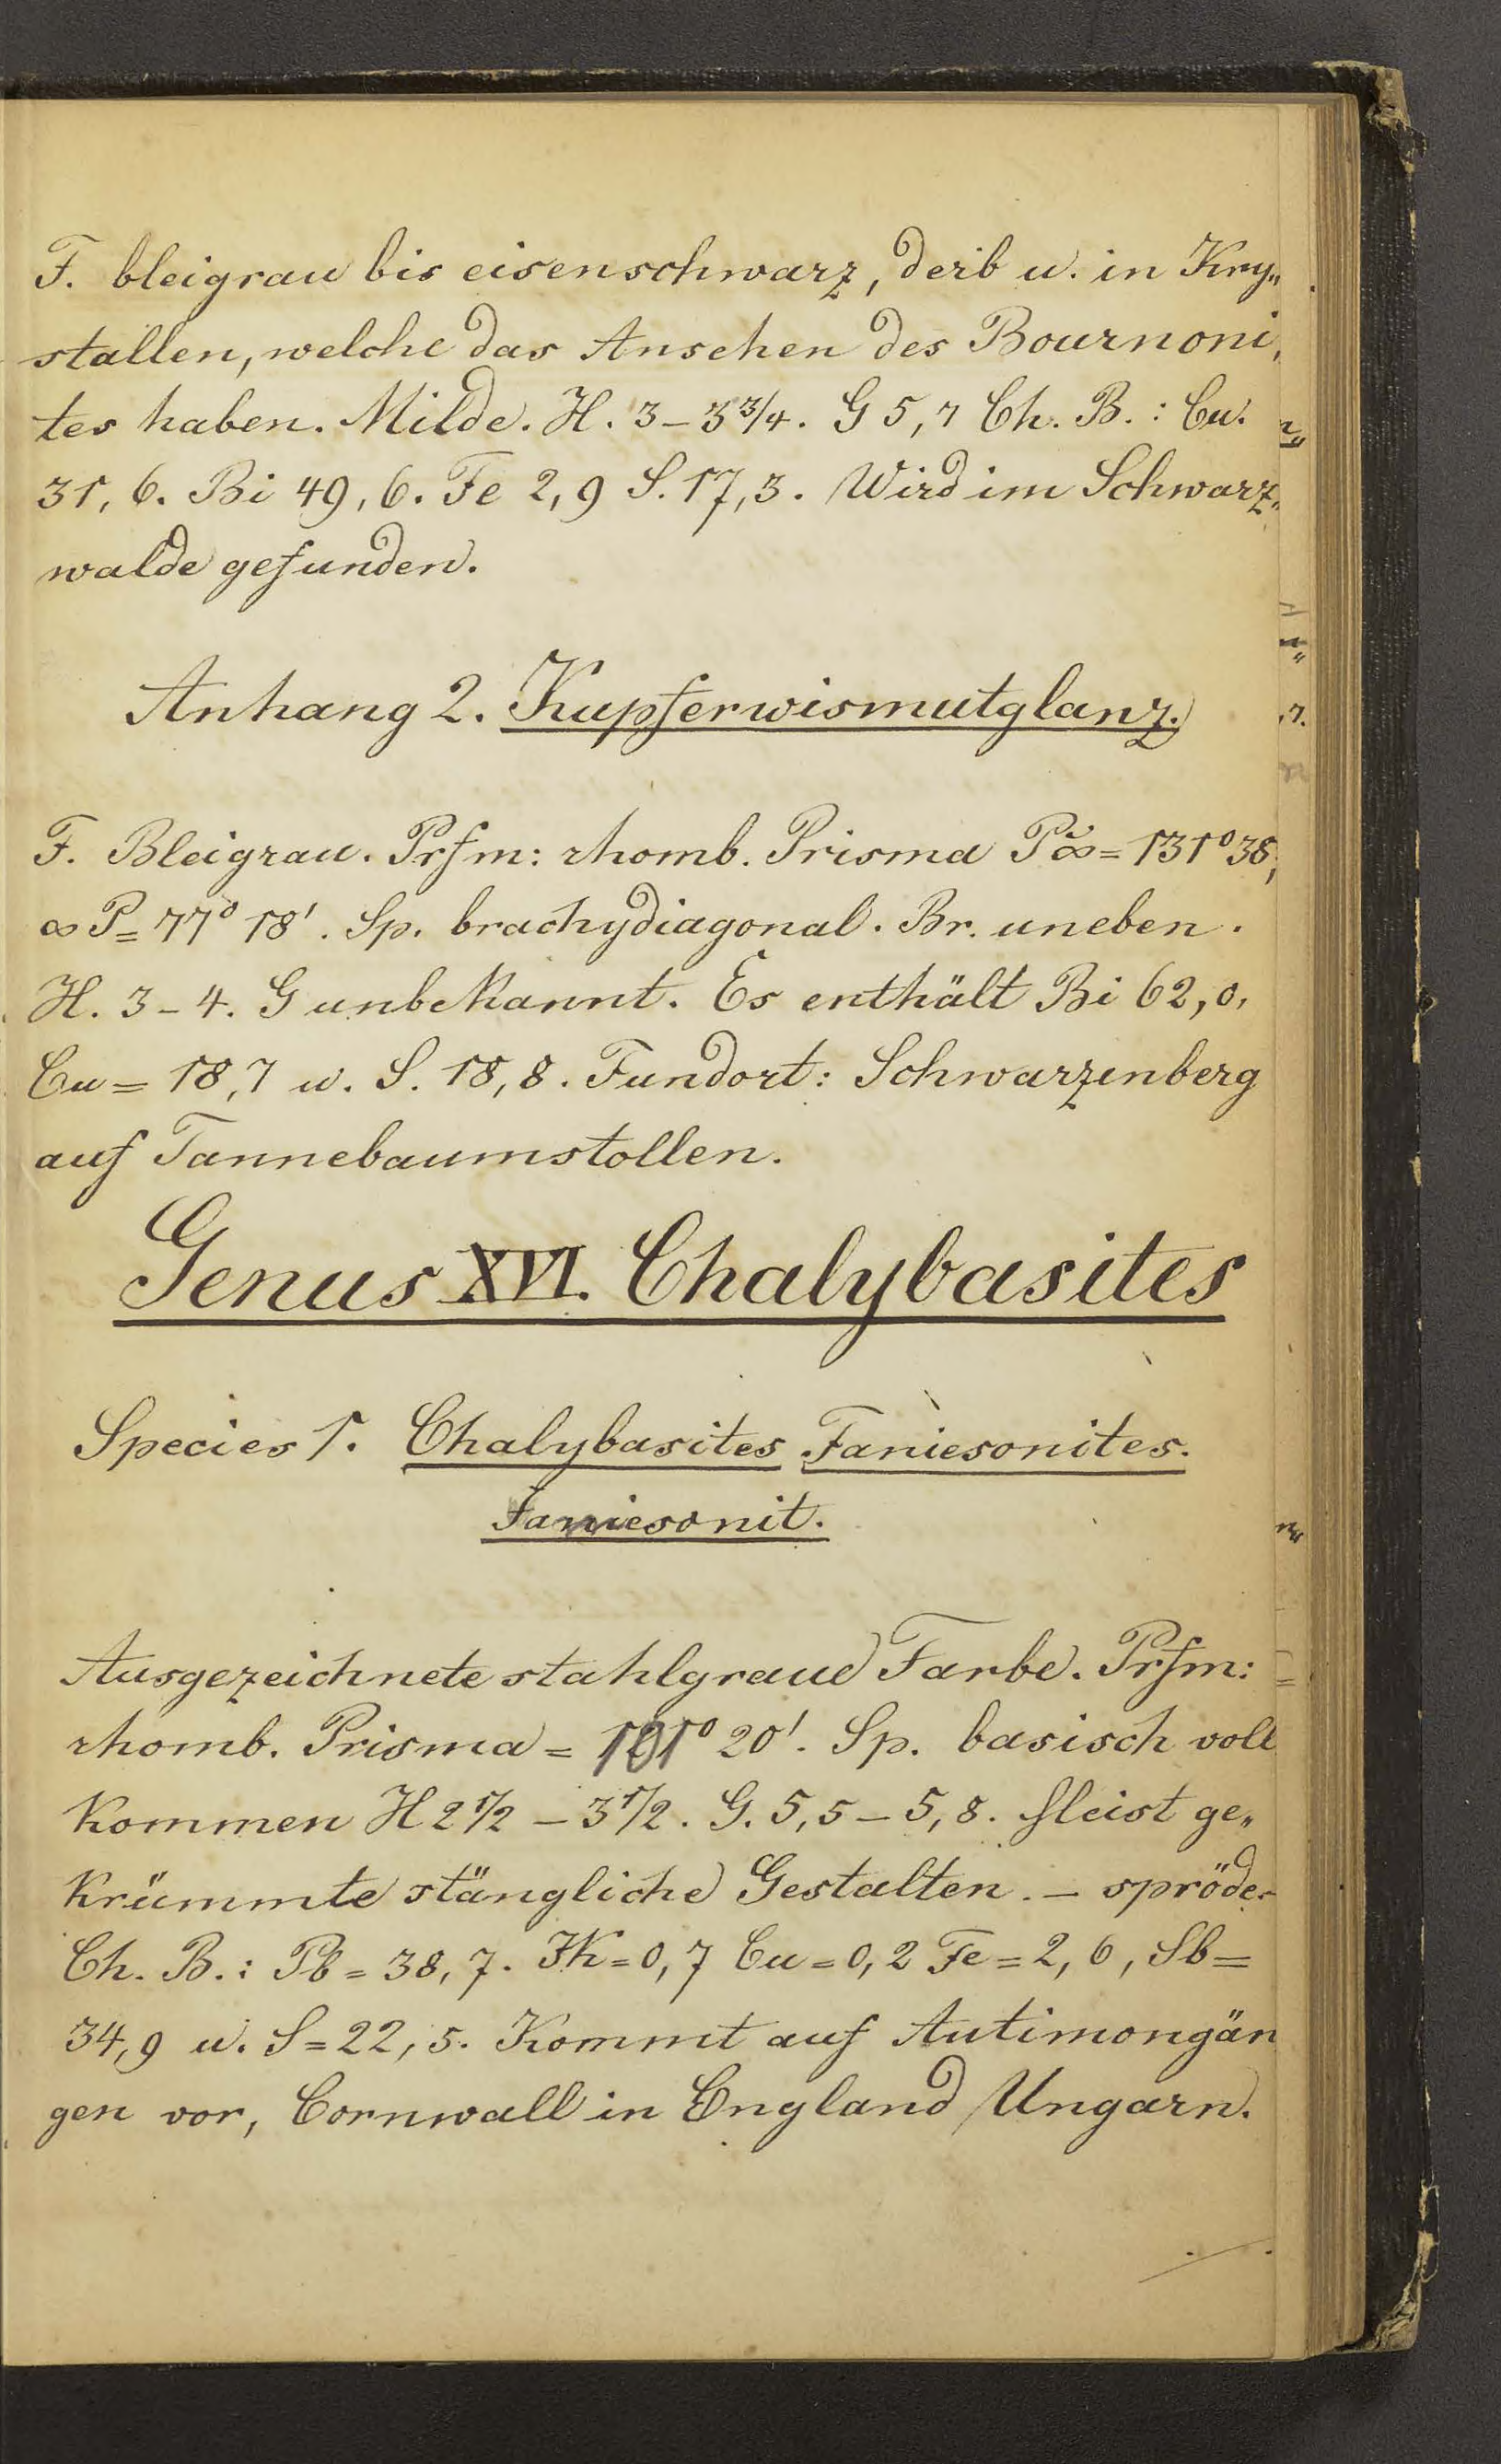 F. bleigrau bis eisenschwarz, derb u. in Kry„
stallen, welche das Ansehen des Bournoni„
tes haben. Milde. H. 3–3 3/4. G 5,7 Ch. B.: Cu.
31,6. Bi 49,6. Fe 2,9 S. 17,3. Wird im Schwarz„
walde gefunden.
Anhang 2. Kupferwismutglanz.
F. Bleigrau. Prfm: rhomb. Prisma P̆∞ = 131° 38,
∞P = 77° 18'. Sp. brachydiagonal. Br. uneben.
H. 3–4. G unbekannt. Es enthält Bi 62,0,
Cu = 18,7 u. S. 18,8. Fundort: Schwarzenberg
auf Tannebaumstollen.
Genus XVI. Chalybasites
Species 1. Chalybasites Faniesonites.
Famiesonit.
Ausgezeichnete stahlgraue Farbe. Prfm:
rhomb. Prisma = 101° 20'. Sp. basisch voll
kommen H 2 1/2 – 3 1/2. G. 5,5 – 5,8. Meist ge„
krümmte stängliche Gestalten. – spröde.
Ch. B.: Pb = 38,7. = 0,7 Cu = 0,2 Fe = 2,6, Sb =
34,9 u. S = 22,5. Kommt auf Autimongän
gen vor, Cornwall in England Ungarn.